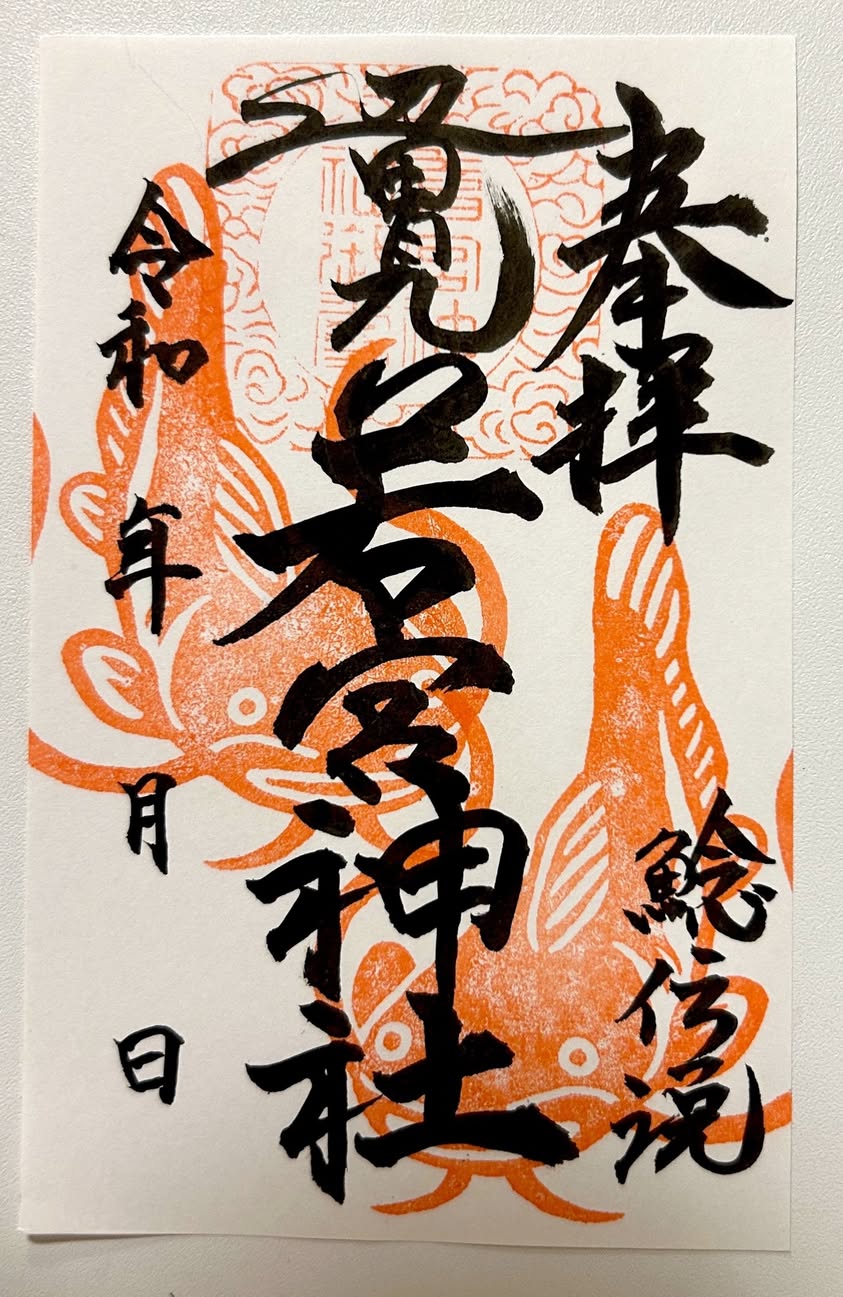 奉拝
鯰伝説
若宮神社
令和 年 月 日